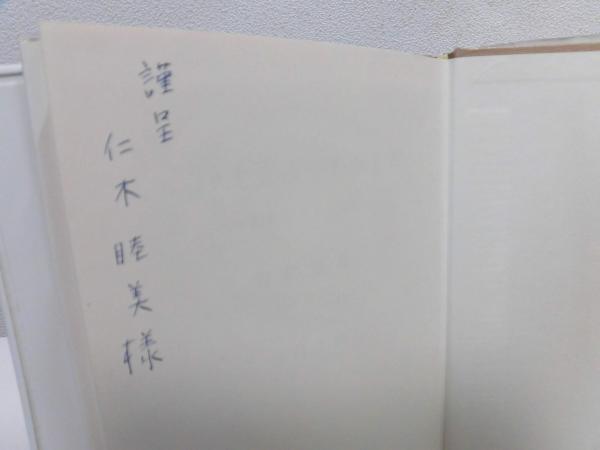 謹呈
仁木睦美様